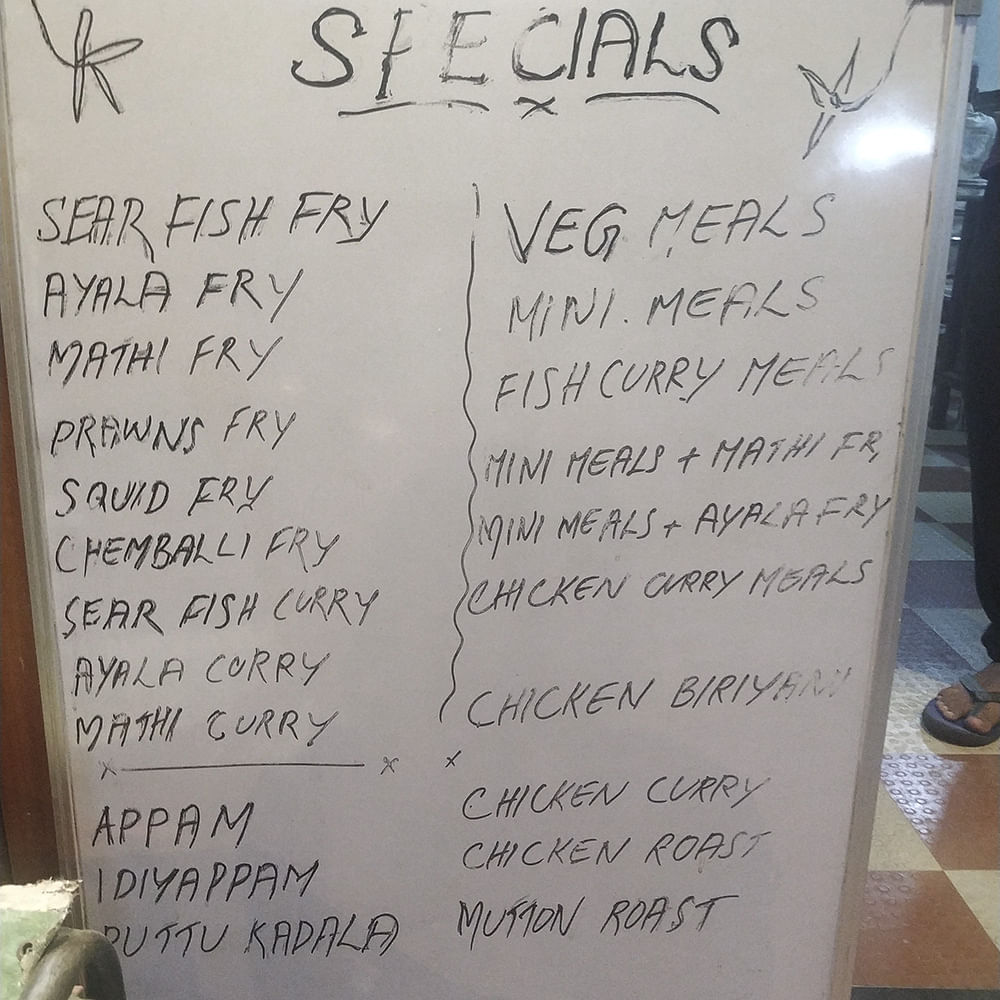 SPECIALS
SEAR FISH FRY
AYALA FRY
MATHI FRY
PRAWNS FRY
SQUID FRY
CHEMBALLI FRY
SEAR FISH CURRY
AYALA CURRY
MATHI CURRY
APPAM
IDIYAPPAM
PUTTU KADALA
VEG MEALS
MINI. MEALS
FISH CURRY MEALS
MINI MEALS + MATHI FR
MINI MEALS + AYALA FRY
CHICKEN CURRY MEALS
CHICKEN BIRIYANI
CHICKEN CURRY
CHICKEN ROAST
MUTTON ROAST